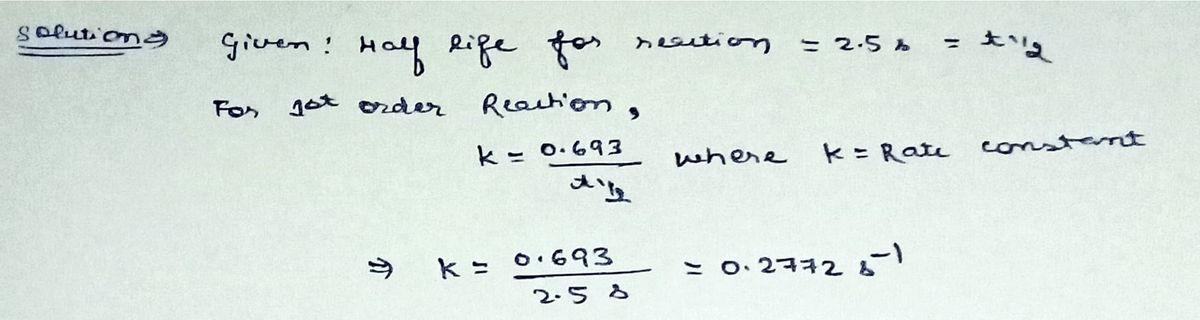 Solution ⇒ Given : Half life for reaction = 2.5 s = t1/2
For 1st order Reaction,
k = 0.693 / t1/2 where k = Rate constant
⇒ k = 0.693 / 2.5 s = 0.2772 s⁻¹